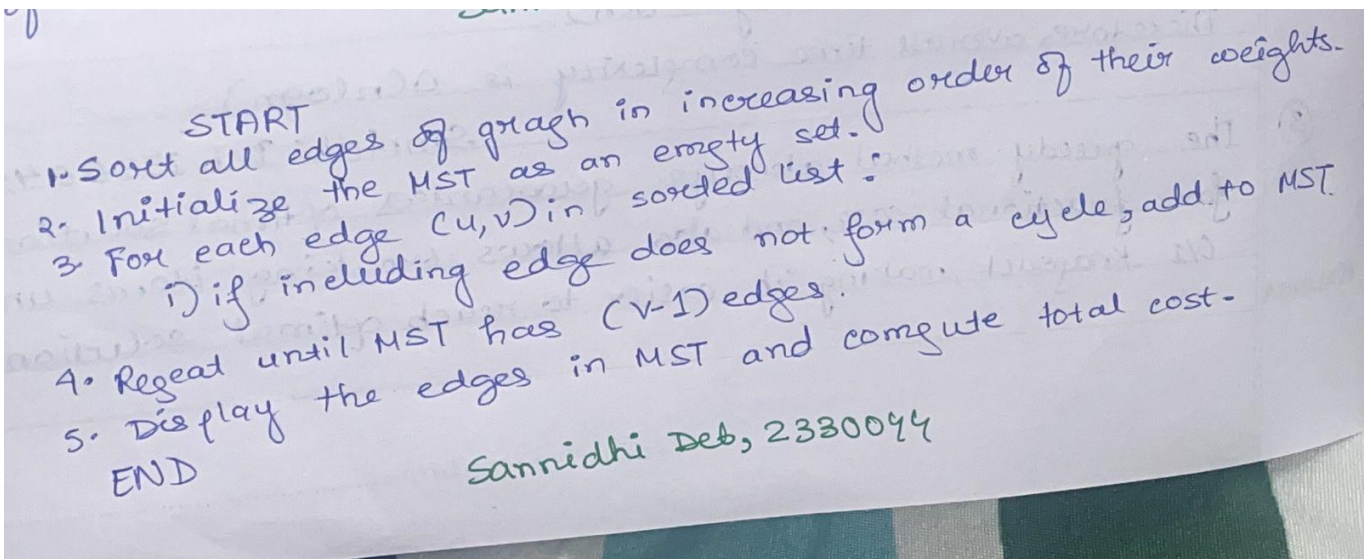 START
1. Sort all edges of graph in increasing order of their weights.
2. Initialize the MST as an empty set.
3. For each edge (u, v) in sorted list :
i) if including edge does not form a cycle, add to MST.
4. Repeat until MST has (V-1) edges.
5. Display the edges in MST and compute total cost.
END
Sannidhi Deb, 2330044